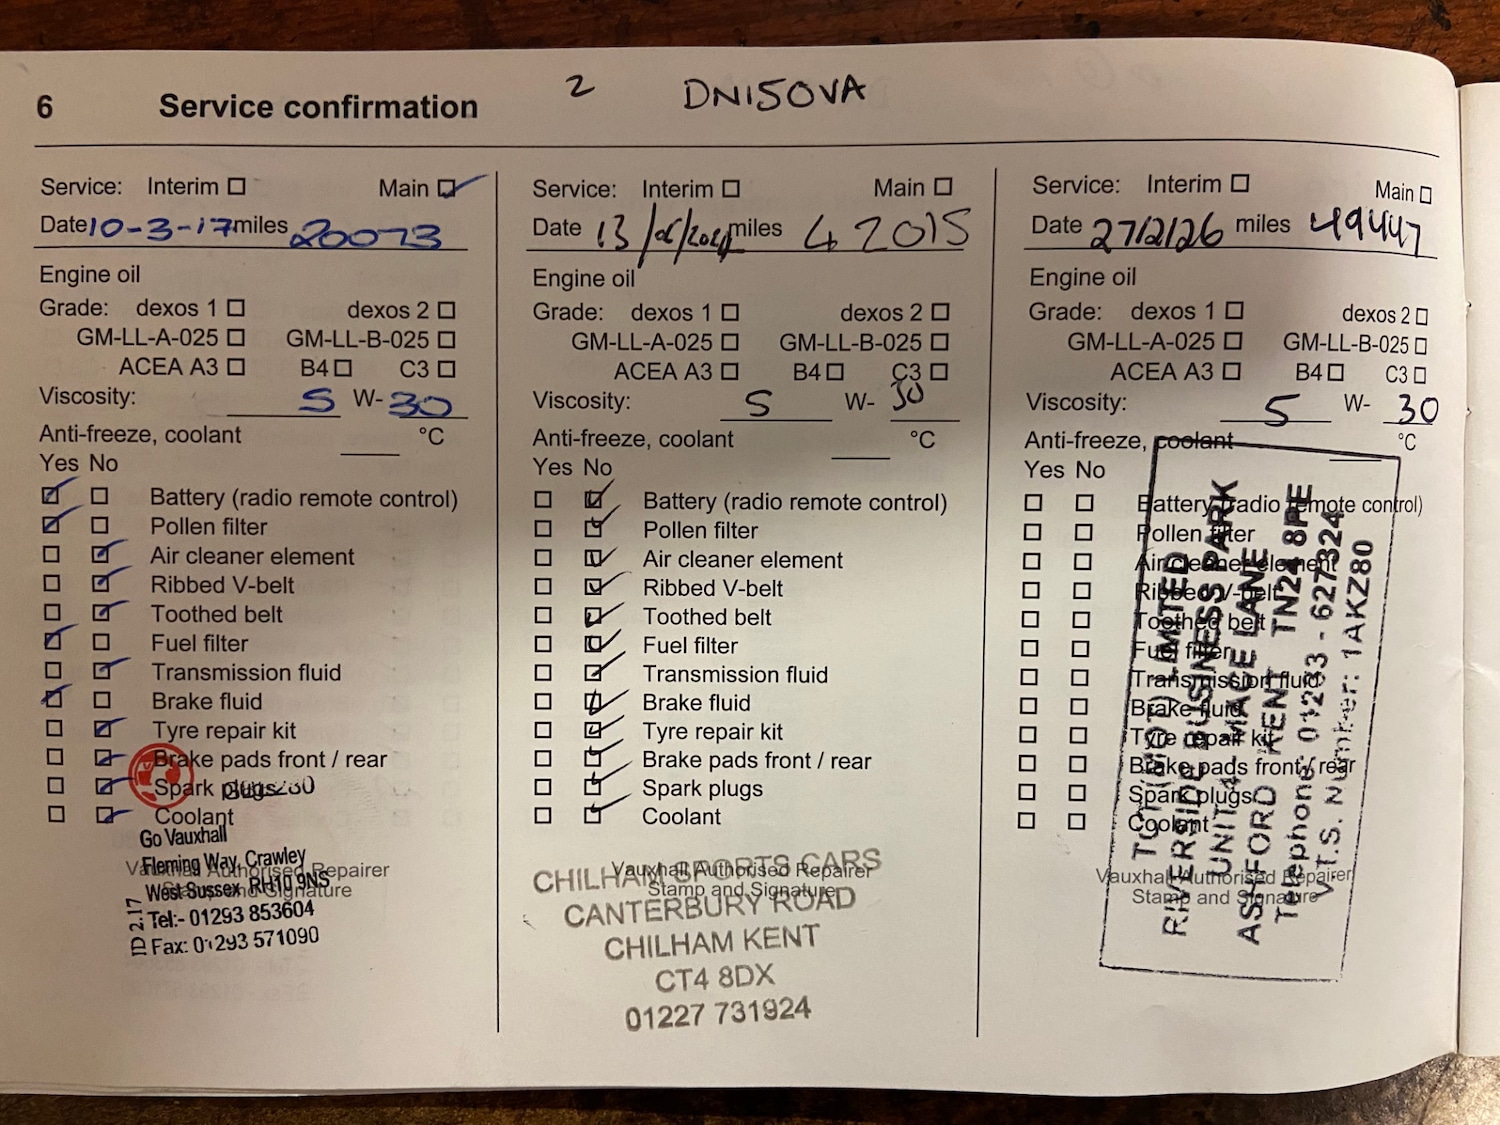 6 Service confirmation 2 DN15OVA
Service: Interim Main
Date 10-3-17 miles 20073
Engine oil
Grade: dexos 1 dexos 2
GM-LL-A-025 GM-LL-B-025
ACEA A3 B4 C3
Viscosity: 5 W- 30
Anti-freeze, coolant °C
Yes No
Battery (radio remote control)
Pollen filter
Air cleaner element
Ribbed V-belt
Toothed belt
Fuel filter
Transmission fluid
Brake fluid
Tyre repair kit
Brake pads front / rear
Spark plugs
Coolant
Vauxhall Authorised Repairer
Stamp and Signature
Go Vauxhall
Fleming Way, Crawley
West Sussex RH10 9NS
Tel:- 01293 853604
Fax: 01293 571090
ID 2.17
Service: Interim Main
Date 13/ miles 42015
Engine oil
Grade: dexos 1 dexos 2
GM-LL-A-025 GM-LL-B-025
ACEA A3 B4 C3
Viscosity: 5 W- 30
Anti-freeze, coolant °C
Yes No
Battery (radio remote control)
Pollen filter
Air cleaner element
Ribbed V-belt
Toothed belt
Fuel filter
Transmission fluid
Brake fluid
Tyre repair kit
Brake pads front / rear
Spark plugs
Coolant
Vauxhall Authorised Repairer
Stamp and Signature
CHILHAM SPORTS CARS
CANTERBURY ROAD
CHILHAM KENT
CT4 8DX
01227 731924
Service: Interim Main
Date 27/2/26 miles 49447
Engine oil
Grade: dexos 1 dexos 2
GM-LL-A-025 GM-LL-B-025
ACEA A3 B4 C3
Viscosity: 5 W- 30
Anti-freeze, coolant °C
Yes No
Battery (radio remote control)
Pollen filter
Air cleaner element
Ribbed V-belt
Toothed belt
Fuel filter
Transmission fluid
Brake fluid
Tyre repair kit
Brake pads front / rear
Spark plugs
Coolant
Vauxhall Authorised Repairer
Stamp and Signature
(MOT) LIMITED
RIVERSIDE BUSINESS PARK
UNIT 4 MACE LANE
ASHFORD KENT TN24 8PE
Telephone 01233 - 627324
V.T.S. Number: 1AKZ80